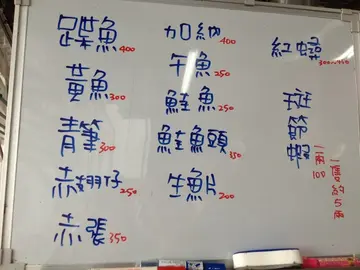 蹀魚 400
黃魚 300
青筆 300
赤翅仔 250
赤張 350
加納 400
午魚 250
鮭魚 250
鮭魚頭
生魚片 200
紅蟳
斑節蝦
一兩100
一隻約5兩